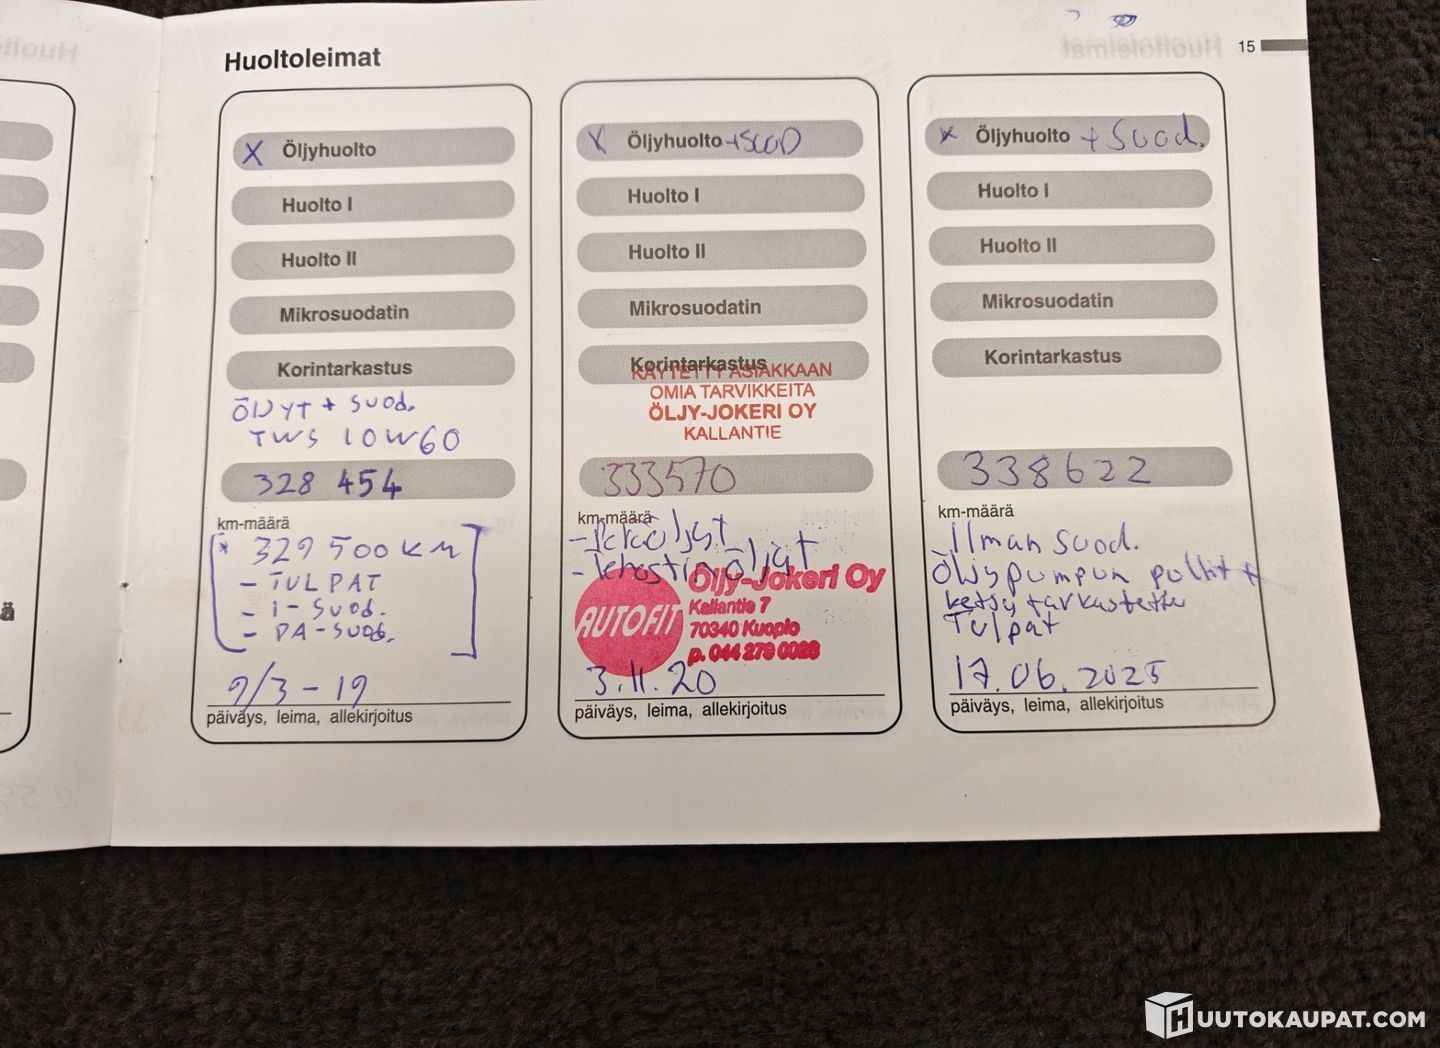 Huoltoleimat
15
X Öljyhuolto
Huolto I
Huolto II
Mikrosuodatin
Korintarkastus
ÖLJYT + SUOD.
TWS 10W60
328 454
km-määrä
* 329 500 KM
- TULPAT
- I-SUOD.
- PA-SUOD.
9/3-19
päiväys, leima, allekirjoitus
X Öljyhuolto +SUOD
Huolto I
Huolto II
Mikrosuodatin
Korintarkastus
KÄYTETTY ASIAKKAAN
OMIA TARVIKKEITA
ÖLJY-JOKERI OY
KALLANTIE
333570
km-määrä
- Peräöljyt
- tehostinöljyt
Öljy-Jokeri Oy
AUTOFIT
Kallantie 7
70340 Kuopio
p. 044 279 0028
3.11.20
päiväys, leima, allekirjoitus
x Öljyhuolto + Suod.
Huolto I
Huolto II
Mikrosuodatin
Korintarkastus
338622
km-määrä
Ilman suod.
Öljypumpun pultit +
ketju tarkastettu
Tulpat
17.06.2025
päiväys, leima, allekirjoitus
HUUTOKAUPAT.COM